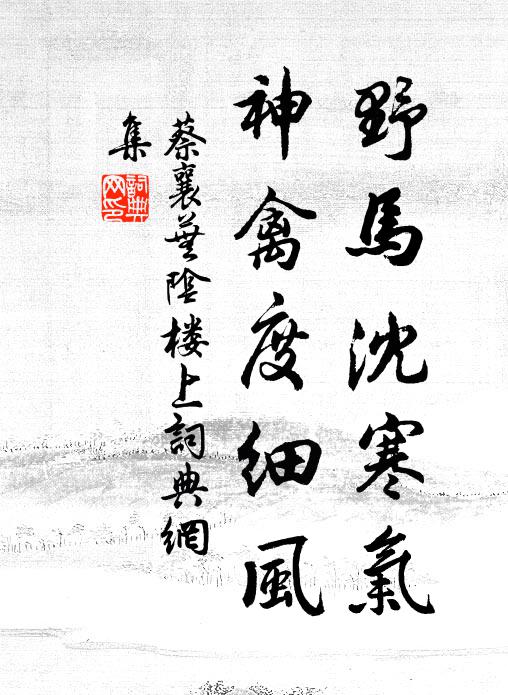 野馬沈寒氣
神禽度細風
蔡襄葊陰楼上詞典網
集
詞典
网印